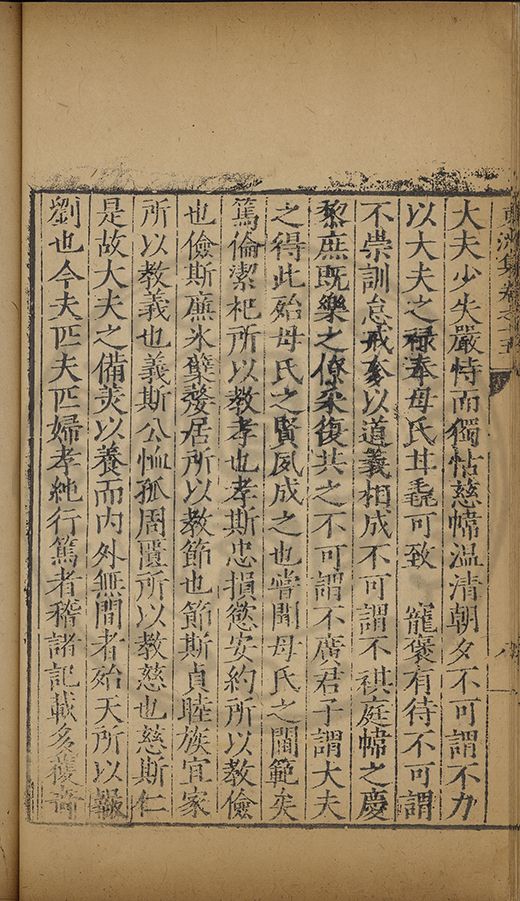 大夫少失嚴恃而獨怙慈幃溫凊朝夕不可謂不力
以大夫之祿奉母氏甘毳可致　寵褒有待不可謂
不崇訓怠戒奓以道義相成不可謂不祺庭幃之慶
黎庶旣樂之僚寀復共之不可謂不廣君子謂大夫
之得此殆母氏之賢夙成之也嘗聞母氏之閫範矣
篤倫潔祀所以教孝也孝斯忠損慾安約所以教儉
也儉斯亷氷蘖嫠居所以教節也節斯貞睦族宜家
所以教義也義斯公恤孤周匱所以教慈也慈斯仁
是故大夫之備羙以養而内外無間者殆天所以報
劉也今夫匹夫匹婦孝純行篤者稽諸記載多獲
八